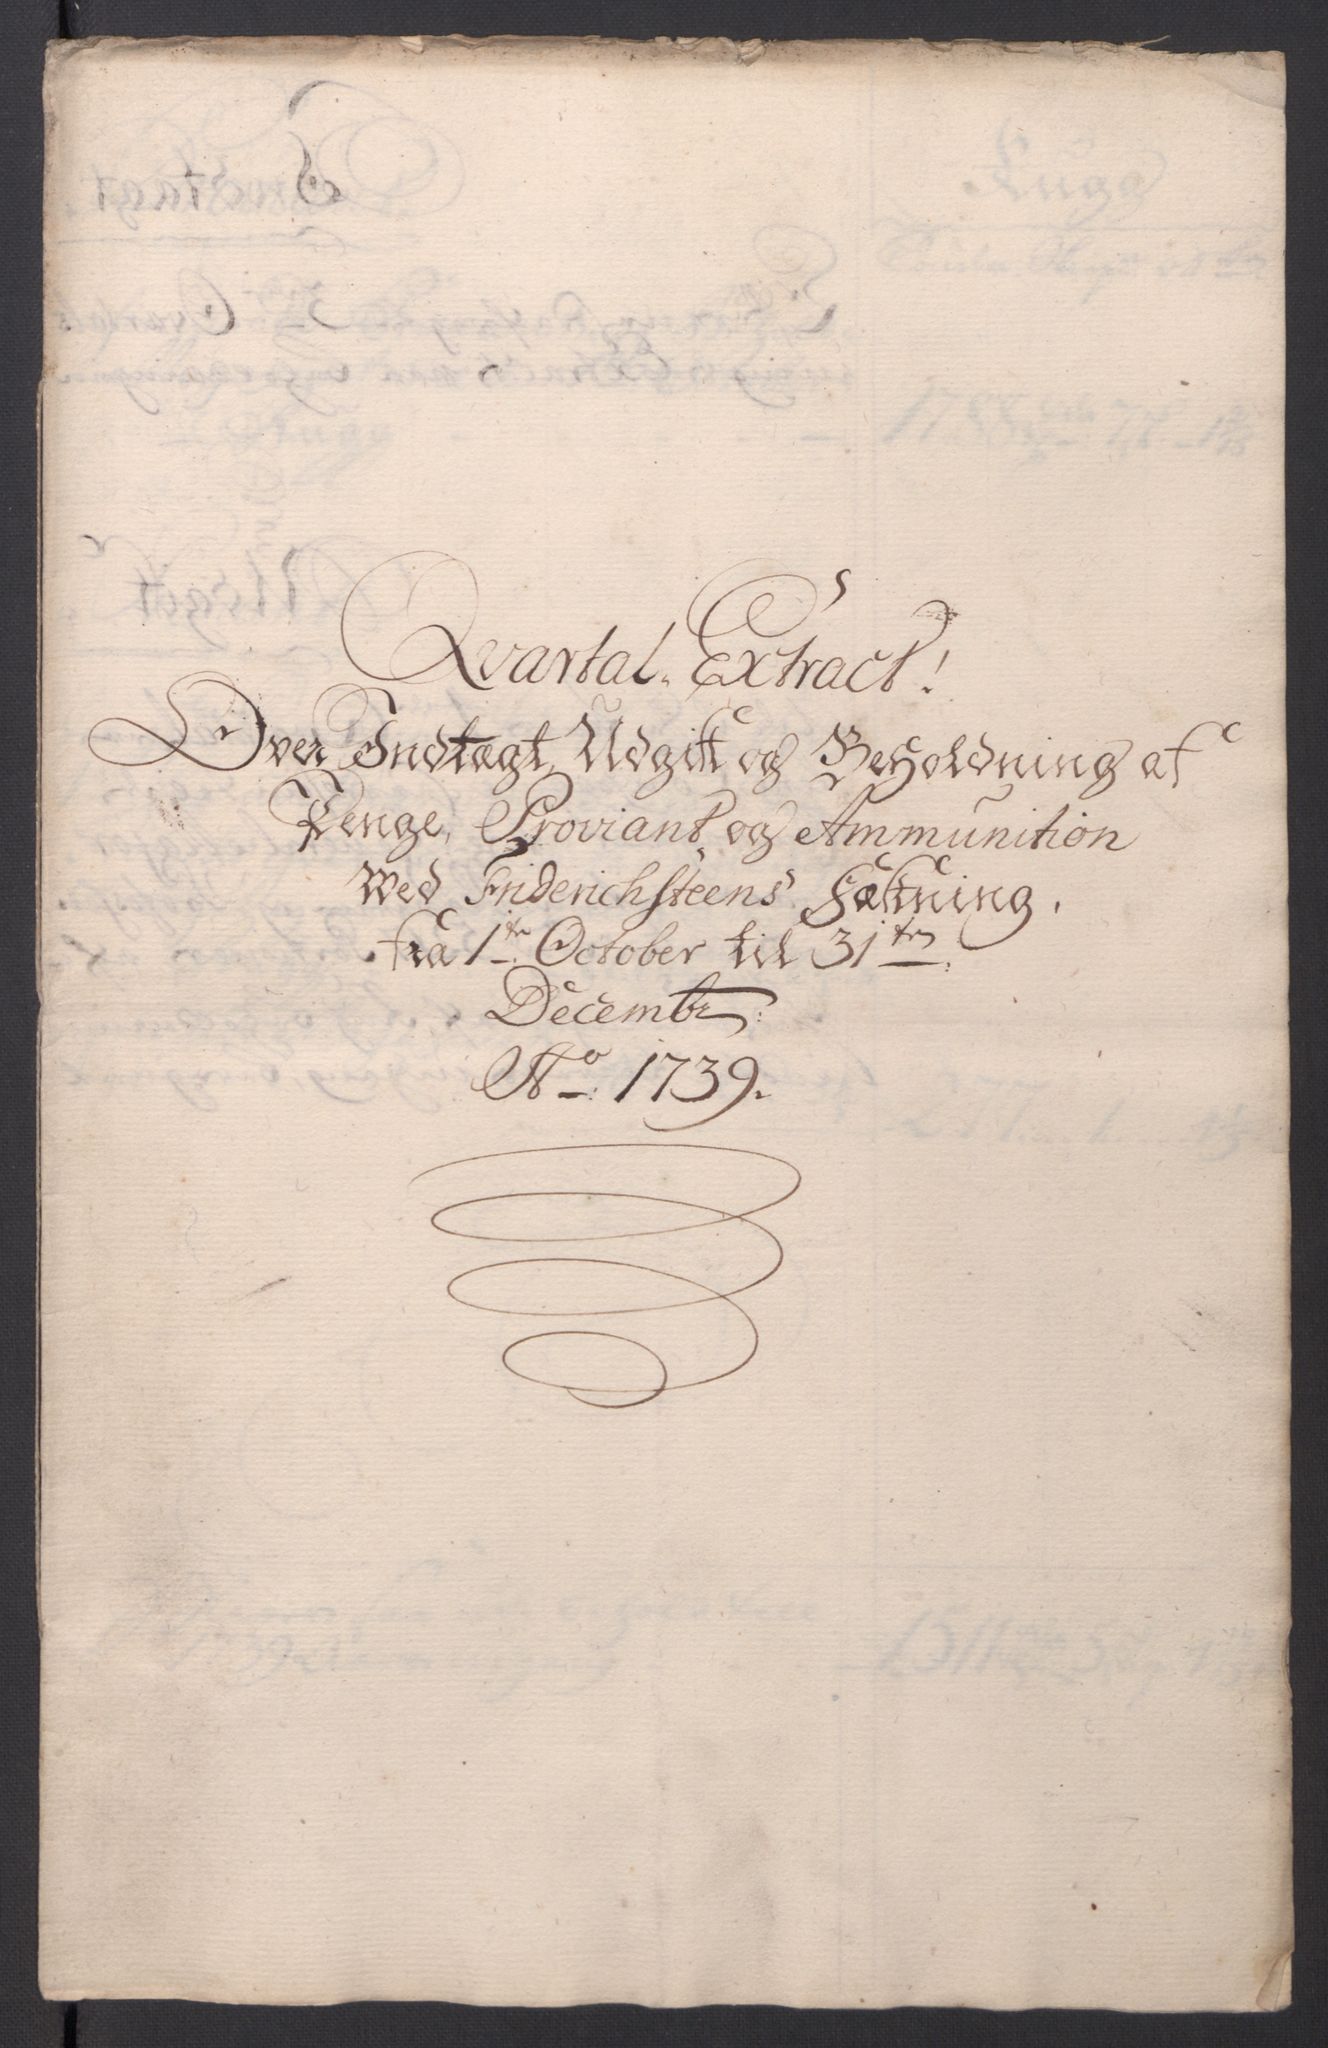 Qvartal. Extract!
Over Indtægt, Udgift og Beholdning af
Penge, Proviant og Ammunition
Wed Friderichsteens Fæstning.
fra 1te October til 31ten
Decembr:
Ao 1739.